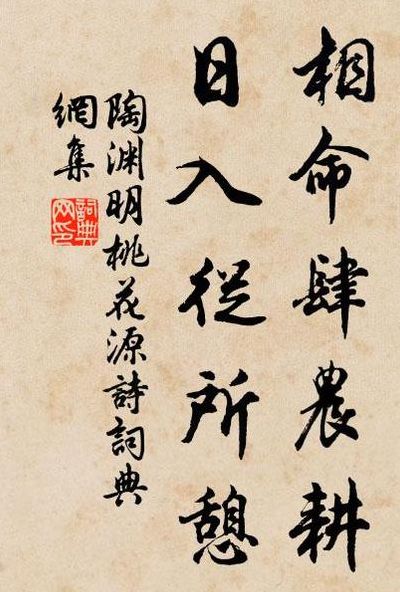 相命肆農耕
日入從所憩
陶渊明桃花源詩詞典
網集
詞典
网印